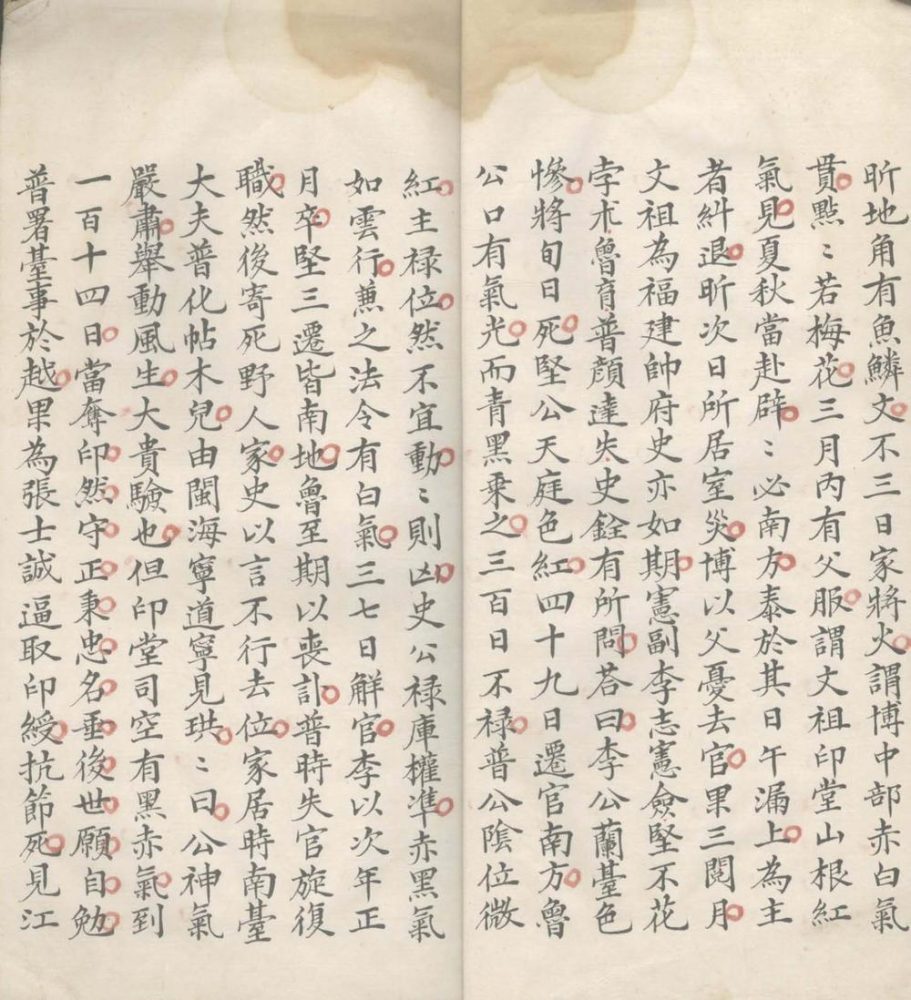 昕地角有魚鱗文不三日家將火謂博中部赤白氣
貫點〻若梅花三月內有父服謂文祖印堂山根紅
氣見夏秋當赴辟〻必南方泰於其日午漏上為主
者糾退昕次日所居室災博以父憂去官果三閱月
文祖為福建帥府史亦如期憲副李志憲僉堅不花
孛朮魯育普顏達失史銓有所問荅曰李公蘭臺色
慘將旬日死堅公天庭色紅四十九日遷官南方魯
公口有氣光而青黑乗之三百日不禄普公陰位微
紅主禄位然不宜動〻則凶史公禄庫權凖赤黑氣
如雲行蕙之法令有白氣三七日觧官李以次年正
月卒堅三遷皆南地魯至期以喪訃普時失官旋復
職然後寄死野人家史以言不行去位家居時南臺
大夫普化帖木兒由閩海寧道寧見珙〻曰公神氣
嚴肅舉動風生大貴驗也但印堂司空有黑赤氣到
一百十四日當奪印然守正秉忠名垂後世願自勉
普署臺事於越果為張士誠逼取印綬抗節死見江